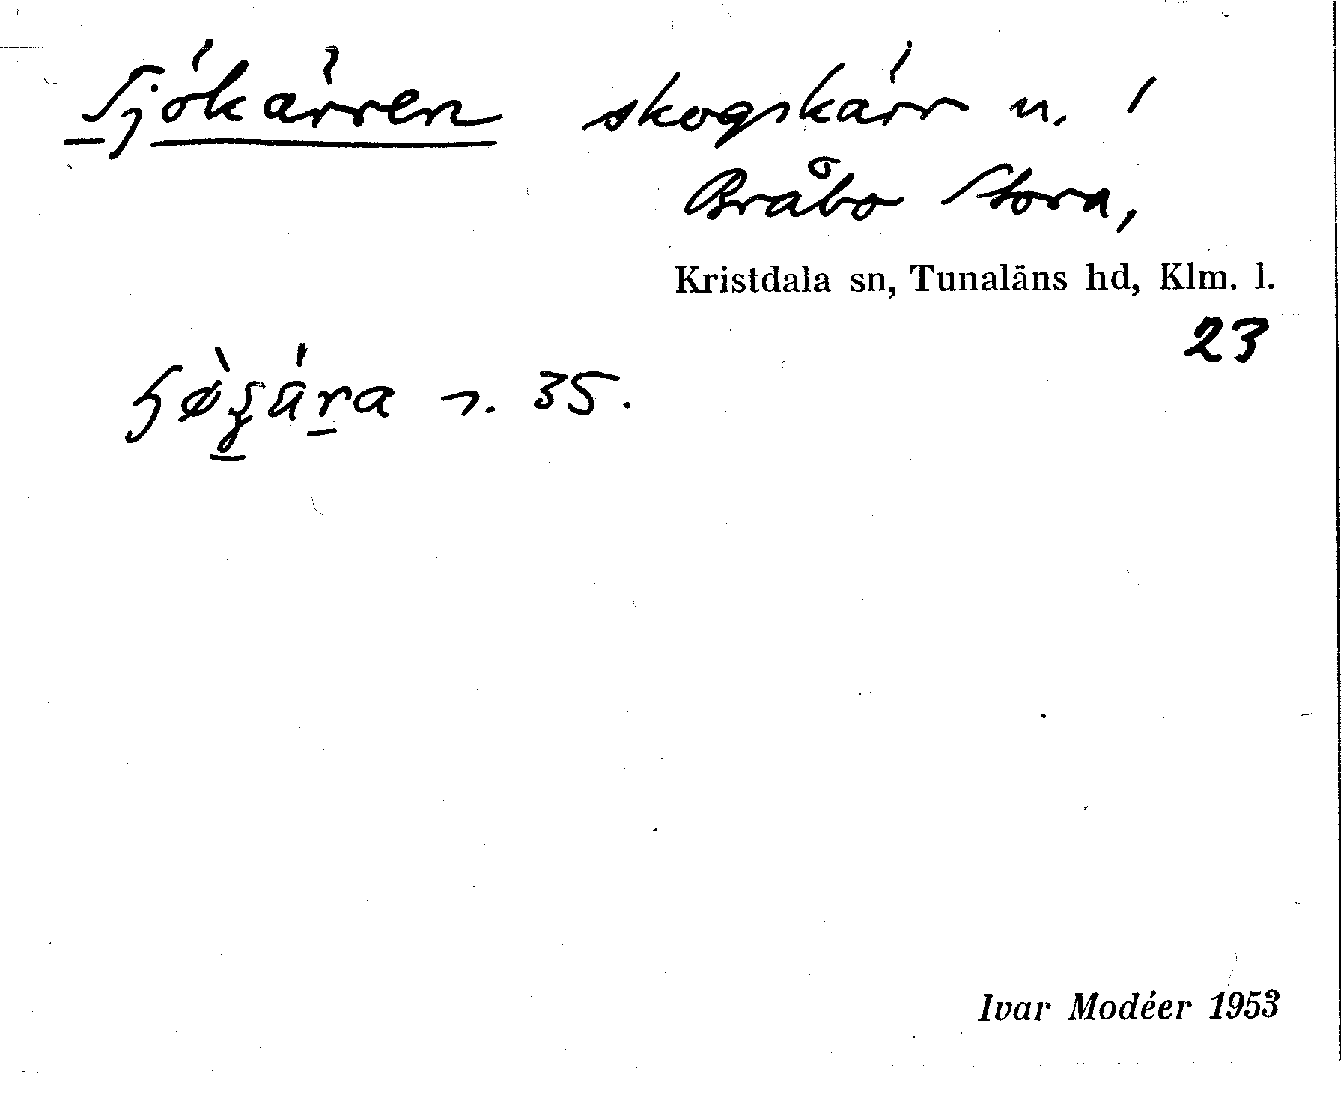 Sjökärren skogskärr n. 1
Bråbo Stora,
Kristdala sn, Tunaläns hd, Klm. l.
23
35.
Ivar Modéer 1953